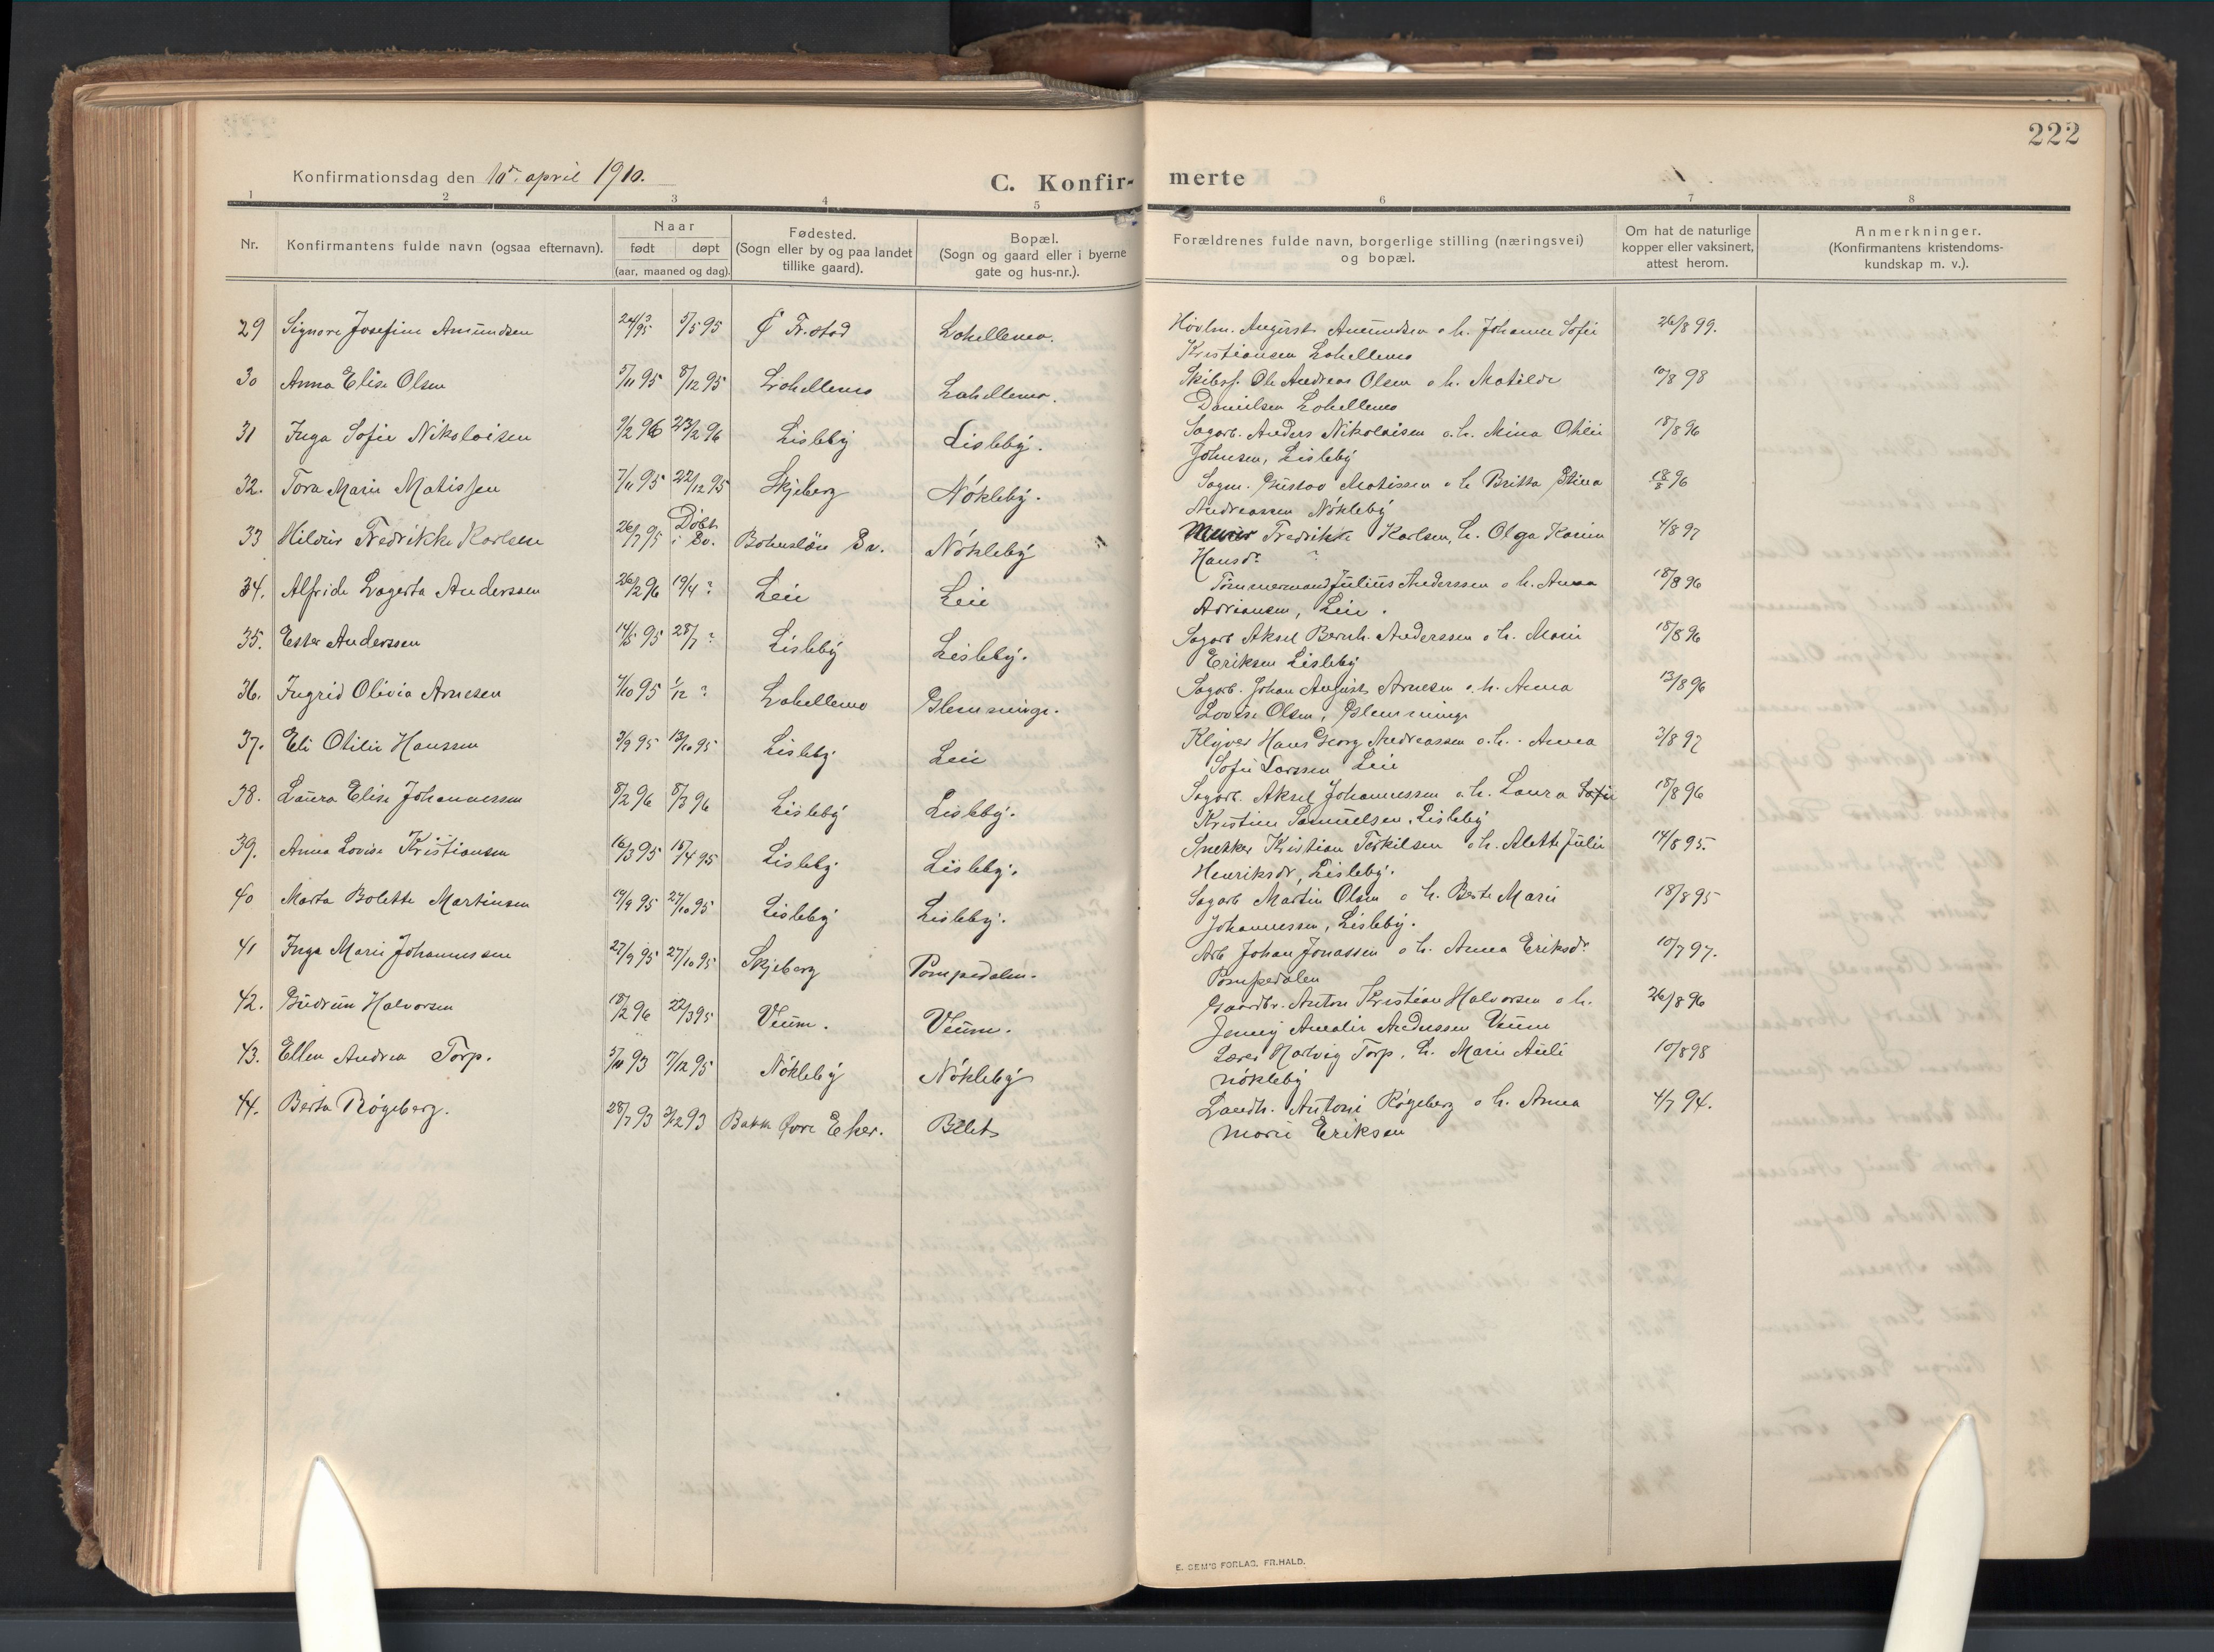 222
Konfirmationsdag den 10de april 1910.
C. Konfir- merte
1 2 3 4 5 6 7 8
Nr.
Konfirmantens fulde navn (ogsaa efternavn).
Naar
født døpt
(aar, maaned og dag).
Fødested.
(Sogn eller by og paa landet
tillike gaard).
Bopæl.
(Sogn og gaard eller i byerne
gate og hus-nr.).
Forældrenes fulde navn, borgerlige stilling (næringsvei)
og bopæl.
Om hat de naturlige
kopper eller vaksinert,
attest herom.
Anmerkninger.
(Konfirmantens kristendoms-
kundskap m. v.).
29 Signore Josefine Amundsen 24/3 95 5/5 95 Fr.stad Lahellemo. Høvlm. August Amundsen o h. Johanne Sofie 26/8 99.
Kristiansen Lahellemo
30 Anna Elise Olsen 5/11 95 8/12 95 Lahellemo Lahellemo. Skibsf. Ole Andreas Olsen o h. Matilde 10/8 98
Danielsen Lahellemo
31 Inga Sofie Nikolaisen 9/2 96 23/2 96 Lisleby Lisleby. Sagarb. Anders Nikolaisen o. h. Mina Otilie 18/8 96
Johnsen, Lisleby
32. Tora Marie Matissen 7/11 95 22/12 95 Skjeberg Nökleby. Sagm. Gustav Matissen o h Britta Stina 18/8 96
Andreassen Nökleby
33 Hildur Fredrikke Karlsen 26/7 95 Döbt i Sv. Bohuslän Sv. Nökleby Murer Fredrik Karlsen, h. Olga Karin 4/8 97
Hansdr ?
34. Alfride Lagerta Anderssen 26/2 96 19/4 ? Leie Leie Tömmermand Julius Anderssen o h. Anna 18/8 96
Adriansen, Leie.
35. Ester Anderssen 14/5 95 28/7 ? Lisleby Lisleby. Sagarb Aksel Bernh. Anderssen o h. Marie 18/8 96
Eriksen Lisleby
36. Ingrid Olivia Arnesen 7/10 95 1/12 ? Lahellemo Glemminge. Sagarb. Johan August Arnesen o. h. Anna 13/8 96
Lovise Olsen, Glemminge
37. Eli Otilie Hanssen 3/9 95 13/10 95 Lisleby Leie Klyver Hans Georg Andreassen o. h. Anna 3/8 97
Sofie Larssen Leie
38. Laura Elise Johannessen 8/2 96 8/3 96 Lisleby Lisleby. Sagarb. Aksel Johannessen o. h. Laura Sofie 18/8 96
Kristine Samuelsen, Lisleby
39. Anna Lovise Kristiansen 16/3 95 15/4 95 Lisleby Lisleby. Snekker Kristian Torkilsen o h. Alette Julie 14/8 95.
Henriksdr, Lisleby.
40 Marta Bolette Martinsen 19/9 95 27/10 95 Lisleby Lisleby. Sagarb Martin Olsen o h. Berte Marie 18/8 95
Johannessen, Lisleby.
41 Inga Marie Johannessen 27/9 95 27/10 95 Skjeberg Pompedalen. Arb Johan Jonassen o h. Anna Eriksdr 10/7 97.
Pompedalen
42. Gudrun Halvorsen 18/2 96 22/3 95 Veum. Veum. Gaardbr. Anton Kristian Halvorsen o h. 26/8 96
Jenny Amalie Andressen Veum
43. Ellen Andrea Torp. 5/11 93 7/12 95 Nökleby Nökleby Lærer Hartvig Torp, h. Marie 10/8 98
nökleby
44. Berta Rögeberg. 28/7 93 3/12 93 Bakk Övre Eker. Bilet Landh. Antoni Rögeberg o h. Anna 4/7 94.
Marie Eriksen
E. SEM'S FORLAG. FR.HALD.